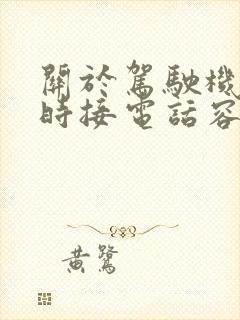 關於駕駛機
時接電話容
黃鷺